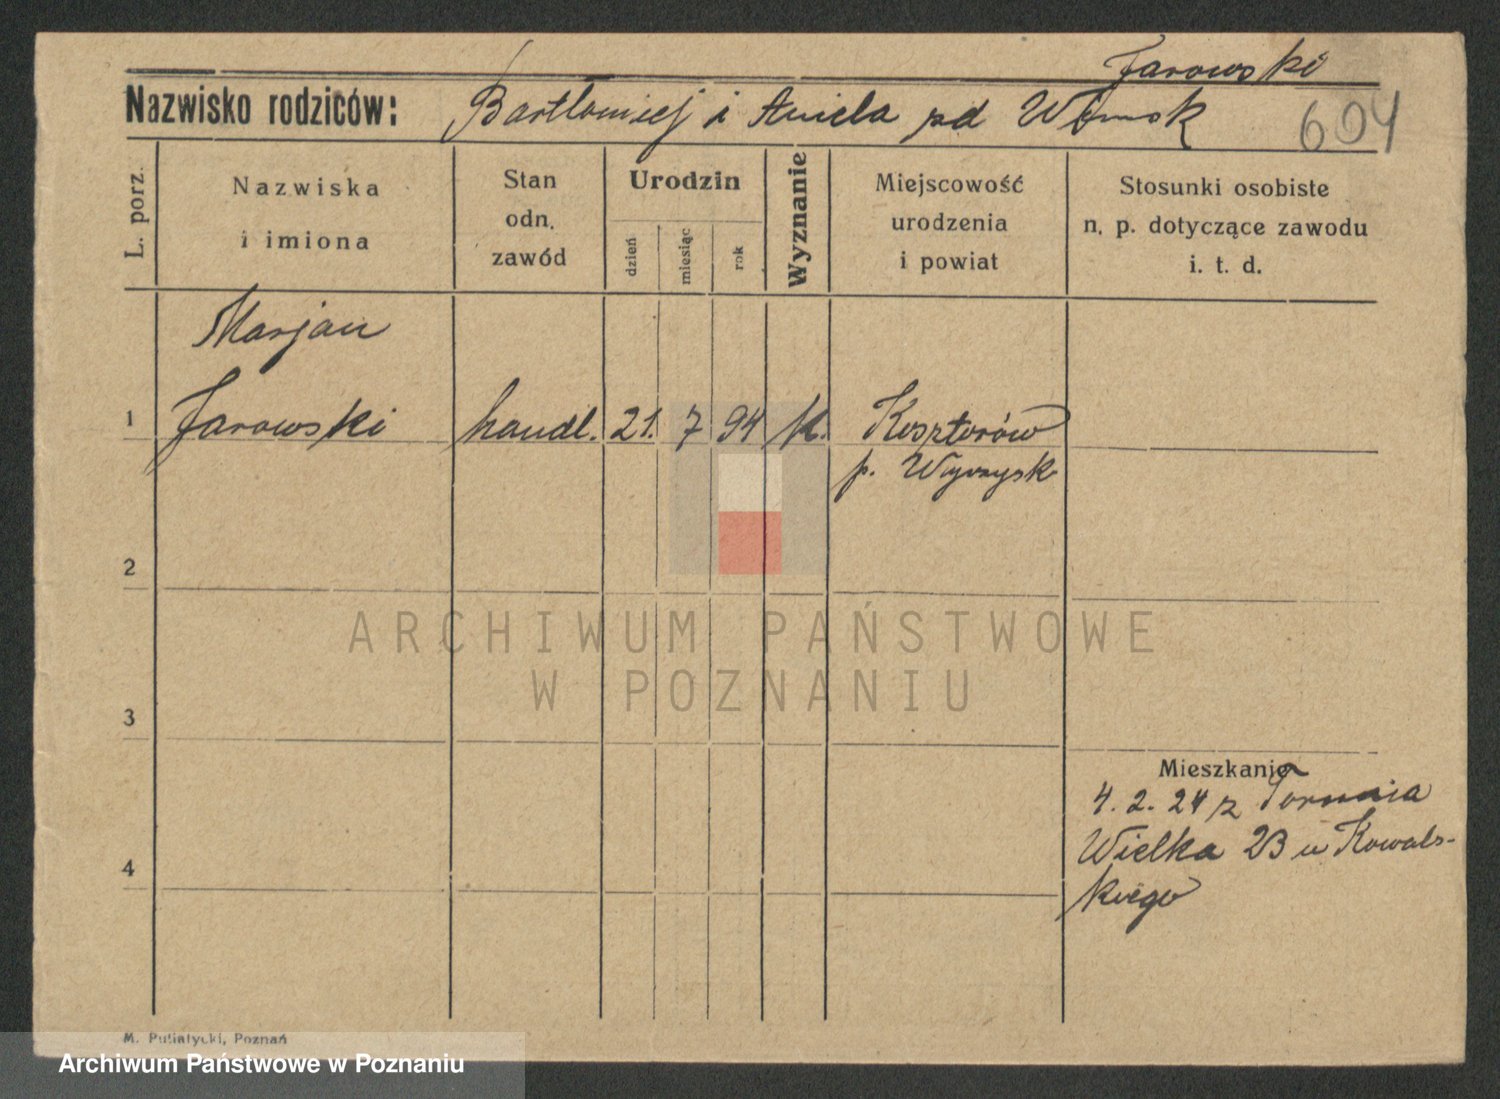 Jarowski
Nazwisko rodziców: Bartłomiej i Aniela zd
604
L. porz.
Nazwiska
i imiona
Stan
odn.
zawód
Urodzin
dzień
miesiąc
rok
Wyznanie
Miejscowość
urodzenia
i powiat
Stosunki osobiste
n. p. dotyczące zawodu
i. t. d.
Marjan
1 Jarowski handl. 21. 7 94 k. Kosztorów
p. Wyrzysk
2
3
4
Mieszkanie
4. 2. 24 z Torunia
Wielka 23 u Kowals-
kiego
M. Putiatycki, Poznań
ARCHIWUM PAŃSTWOWE
W POZNANIU
Archiwum Państwowe w Poznaniu